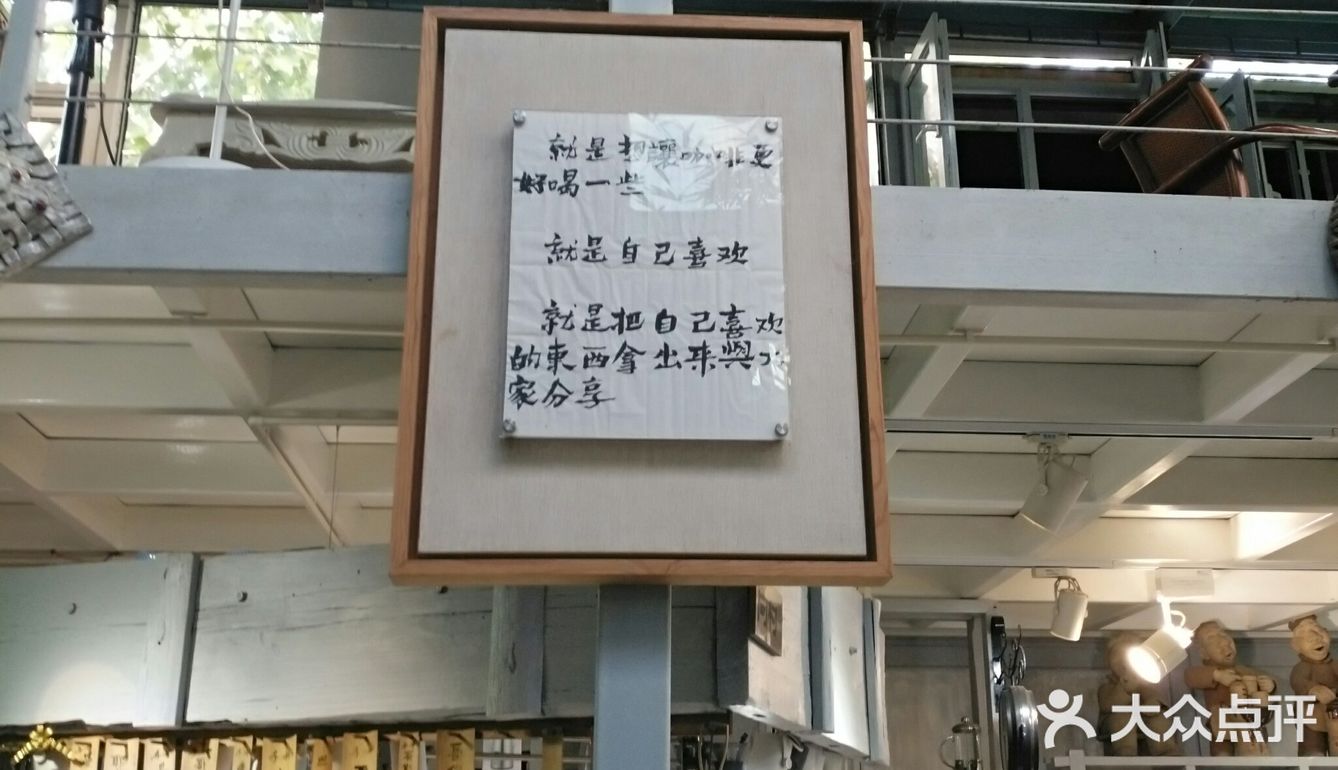 就是想讓咖啡更
好喝一些
就是自己喜欢
就是把自己喜欢
的東西拿出来與大
家分享
大众点评